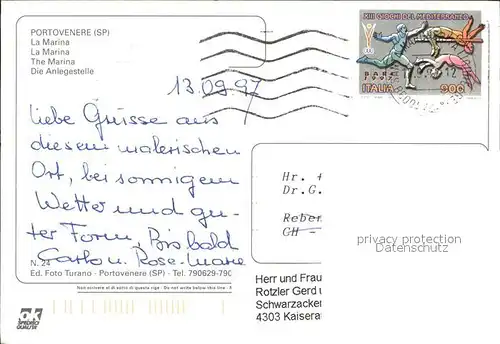 PORTOVENERE (SP)
La Marina
La Marina
The Marina
Die Anlegestelle
XIII GIOCHI DEL MEDITERRANEO
BARI
ITALIA 900
13.09.97
liebe Grüsse aus
diesem malerischen
Ort, bei sonnigem
Wetter und gu-
ter Form, Bis bald
Carlo u. Rose-Marie
Hr.
Dr.G.
Reben
CH -
privacy protection
watermark
N. 24
Ed. Foto Turano - Portovenere (SP) - Tel. 790629-790
Non scrivere al di sotto di questa riga - Do not write below this line -
Herr und Frau
Rotzler Gerd u
Schwarzacker
4303 Kaisera